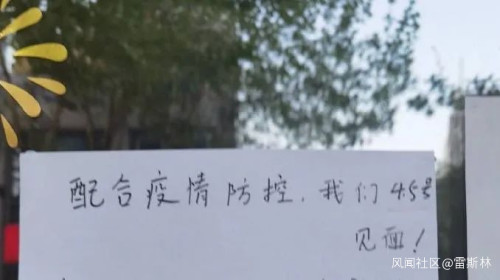 配合疫情防控，我们4.5号
见面！
风闻社区@雷斯林